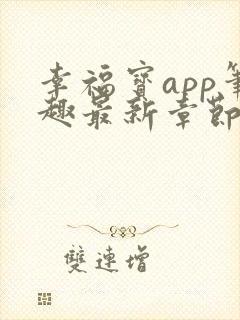 幸福寳app筆
趣最新章節
雙連增